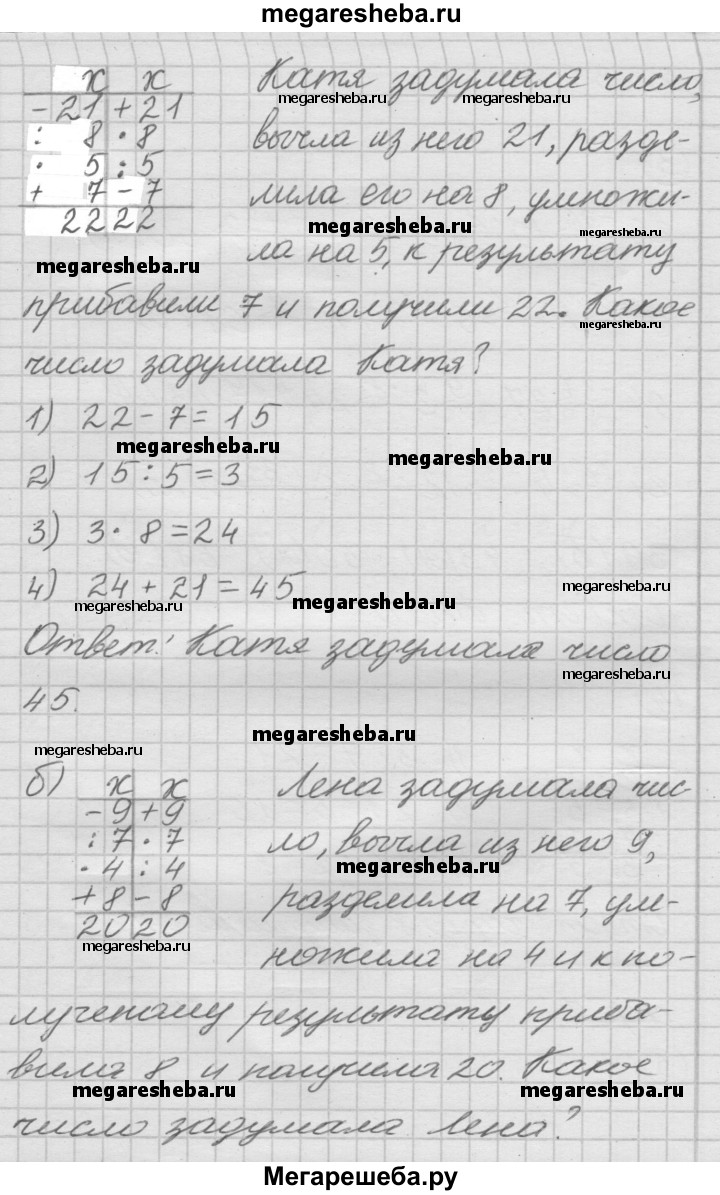 megaresheba.ru
x x Катя задумала число,
megaresheba.ru megaresheba.ru
- 21 + 21
: 8 · 8 вычла из него 21, разде-
· 5 : 5
+ 7 - 7 лила его на 8, умножи-
22 22 megaresheba.ru
ла на 5, к результату
megaresheba.ru
прибавили 7 и получили 22. Какое
megaresheba.ru
число задумала Катя?
1) 22 - 7 = 15
megaresheba.ru
megaresheba.ru
2) 15 : 5 = 3
3) 3 · 8 = 24
4) 24 + 21 = 45
megaresheba.ru
megaresheba.ru
megaresheba.ru
Ответ: Катя задумала число
megaresheba.ru
45.
megaresheba.ru
megaresheba.ru
б) x x Лена задумала чис-
- 9 + 9
: 7 · 7 ло, вычла из него 9,
megaresheba.ru
· 4 : 4
+ 8 - 8 разделила на 7, ум-
20 20
megaresheba.ru
ножила на 4 и к по-
лученому результату приба-
вила 8 и получила 20. Какое
megaresheba.ru megaresheba.ru
число задумала Лена?
Мегарешеба.ру